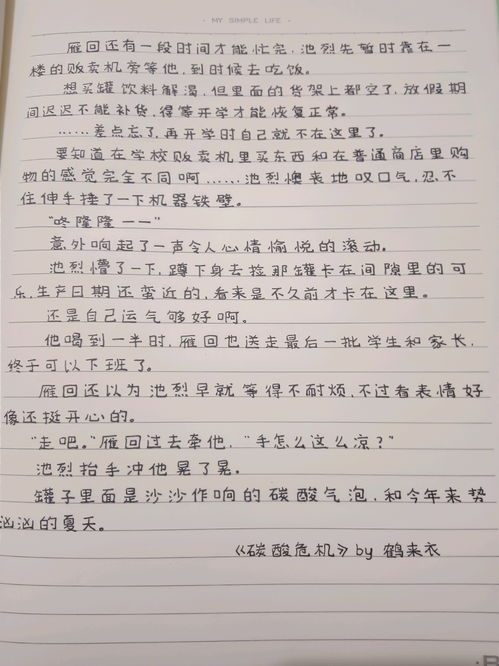 · MY SIMPLE LIFE ·
雁回还有一段时间才能忙完,池烈先暂时靠在一
楼的贩卖机旁等他,到时候去吃饭。
想买罐饮料解渴,但里面的货架上都空了,放假期
间迟迟不能补货,得等开学才能恢复正常。
……差点忘了,再开学时自己就不在这里了。
要知道在学校贩卖机里买东西和在普通商店里购
物的感觉完全不同啊……池烈懊丧地叹口气,忍不
住伸手捶了一下机器铁壁。
“咚隆隆一一”
意外响起了一声令人心情愉悦的滚动。
池烈懵了一下,蹲下身去捡那罐卡在间隙里的可
乐,生产日期还蛮近的,看来是不久前才卡在这里。
还是自己运气够好啊。
他喝到一半时,雁回也送走最后一批学生和家长,
终于可以下班了。
雁回还以为池烈早就等得不耐烦,不过看表情好
像还挺开心的。
“走吧。”雁回过去牵他,“手怎么这么凉?”
池烈抬手冲他晃了晃。
罐子里面是沙沙作响的碳酸气泡,和今年来势
汹汹的夏天。
《碳酸危机》by 鹤来衣